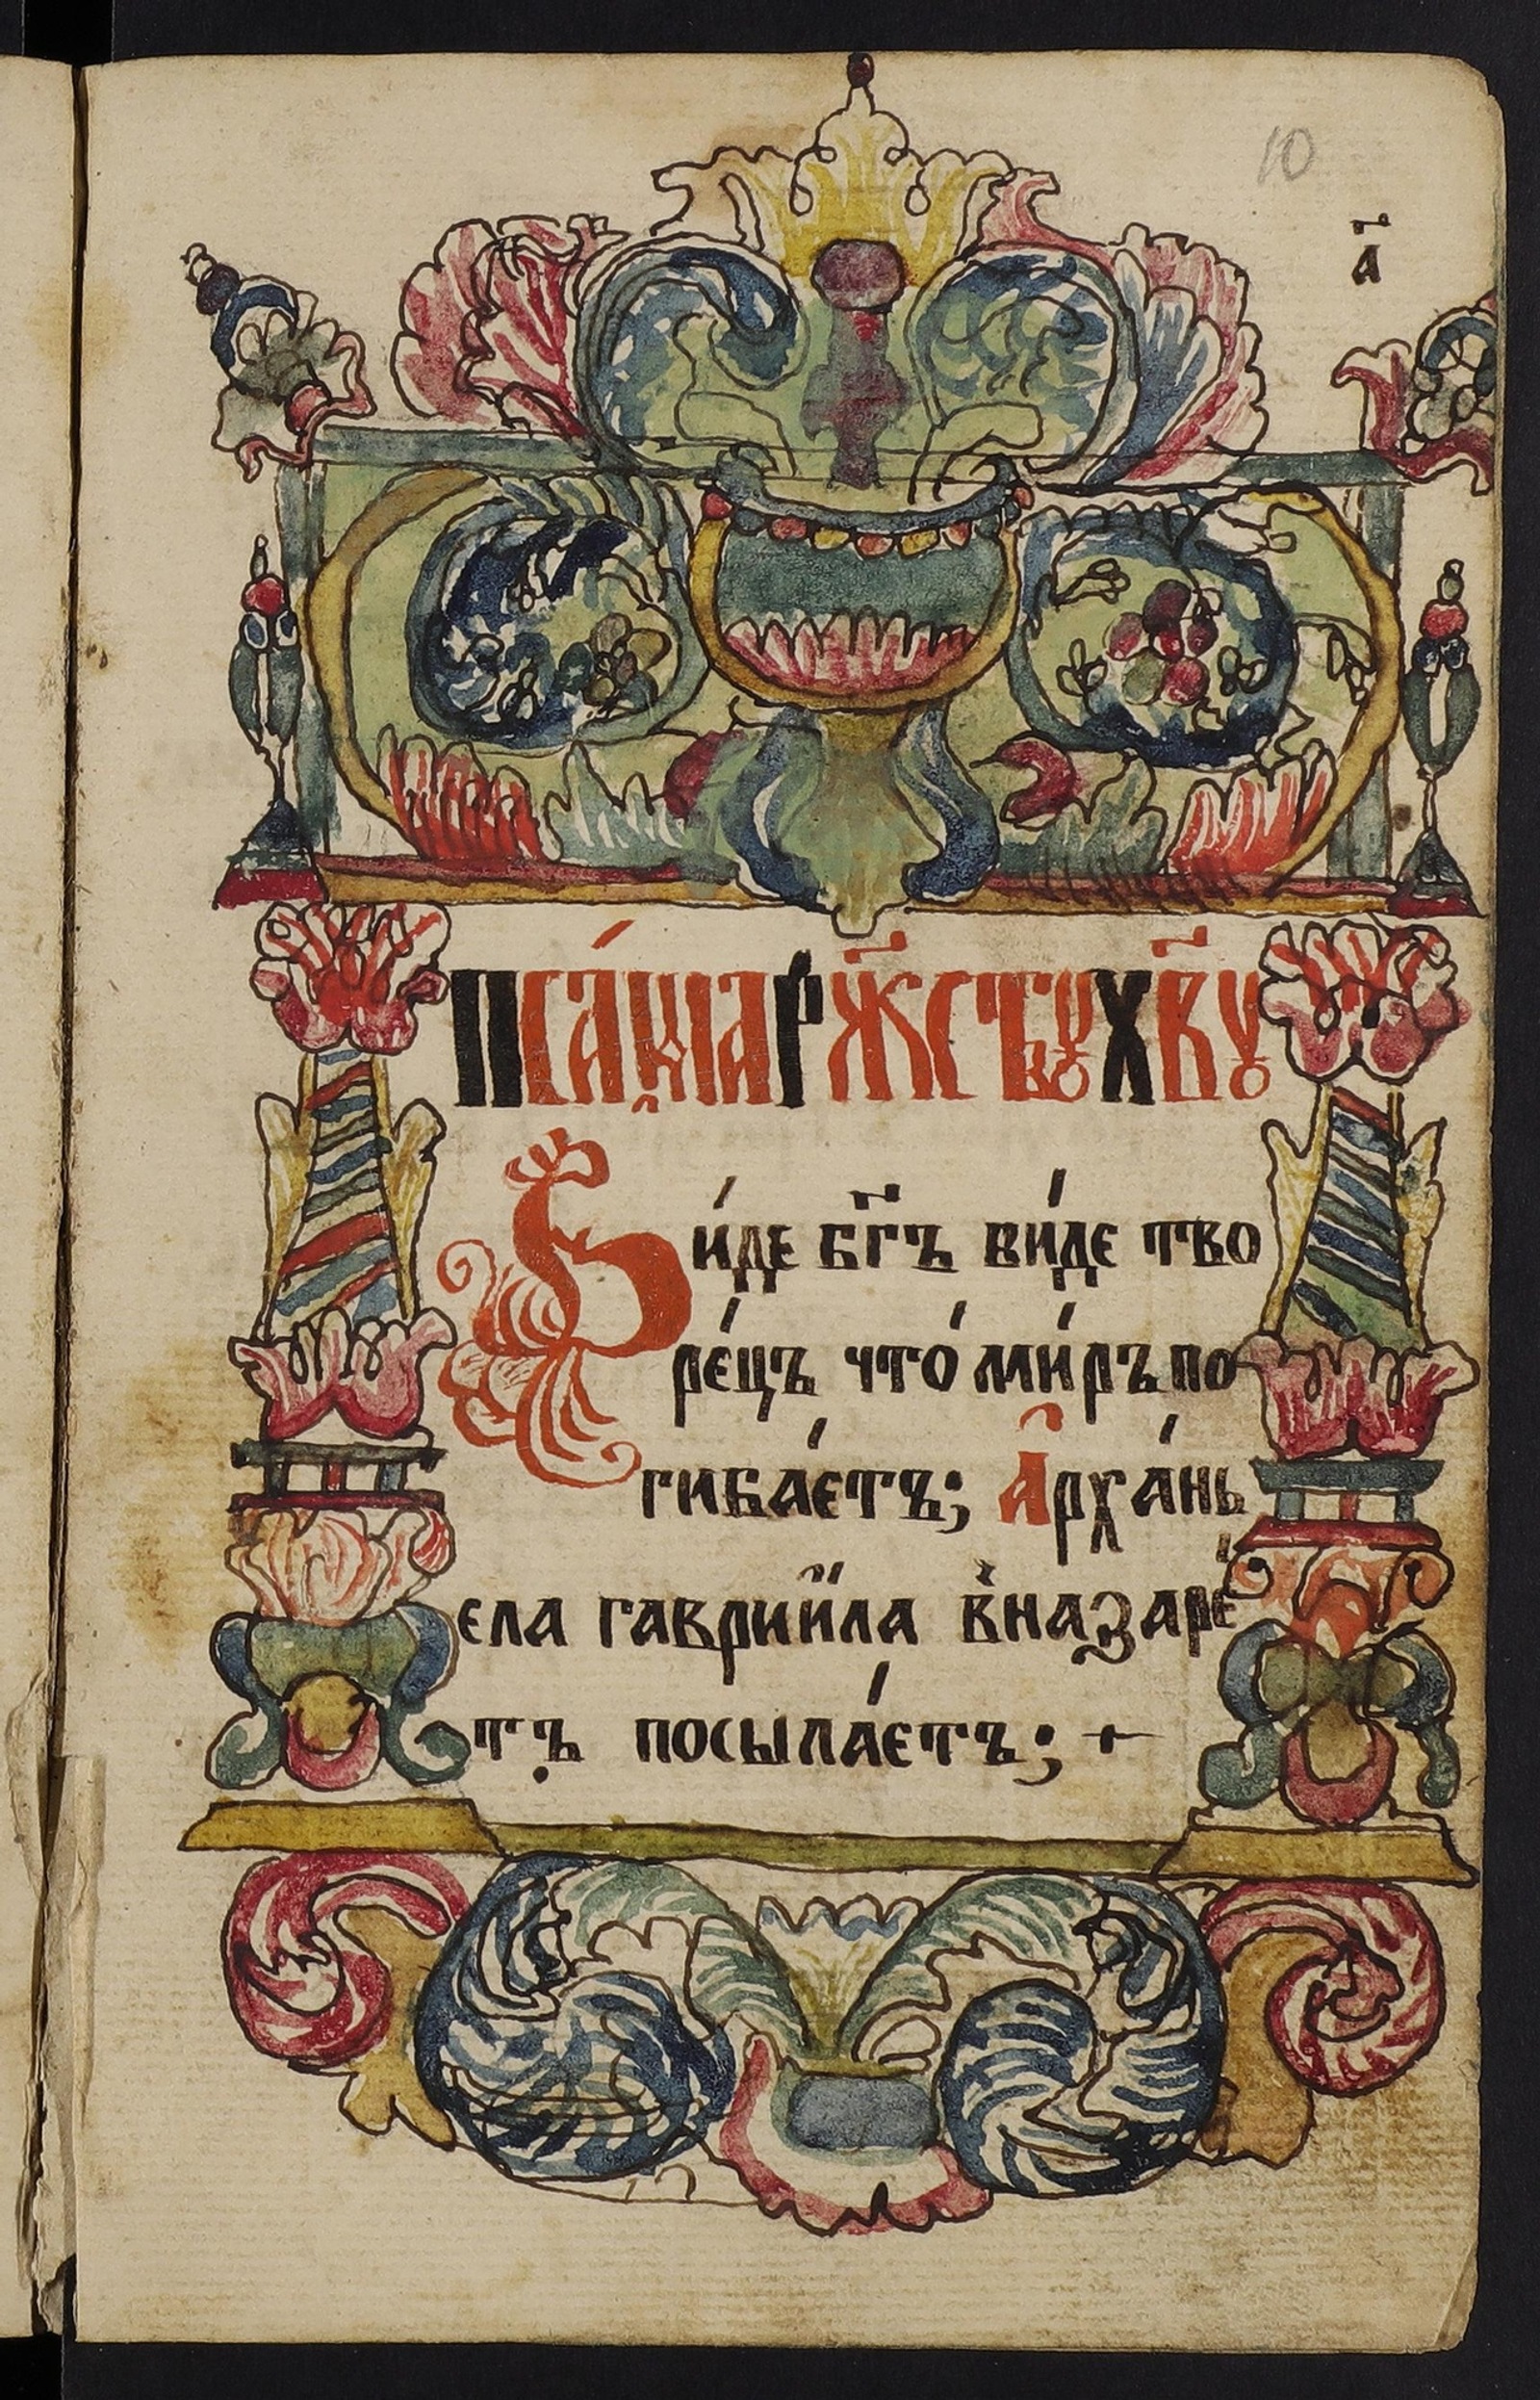 10
а҃
Пса́лма рж҃ству х҃ву
Ви́де бг҃ъ ви́де тво
ре́цъ что́ ми́ръ по
гиба́етъ; А҆рха́нь
ела гаврии́ла в̾назаре́
тъ посыла́етъ; +